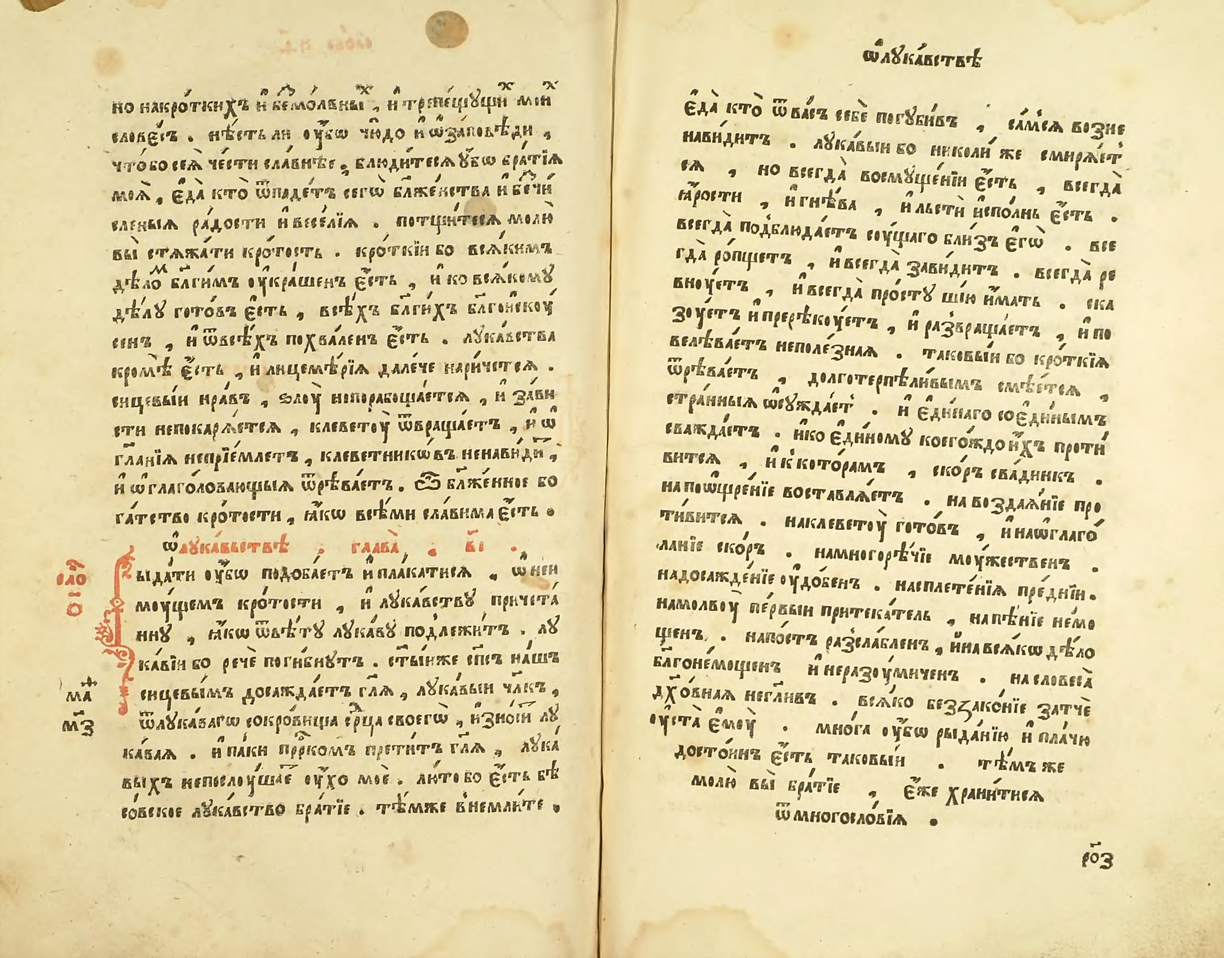 но накро́ткихъ и҆ безмо́лвны́хъ, и҆ трепе́щꙋщихъ мои́хъ
слове́съ . нѣ́сть ли ᲂу҆́бѡ чю́до и҆ ѡ҆ за́повѣди ,
что́ бо сея̀ че́сти сла́внѣе , блюди́теся ᲂу҆́бѡ бра́тїѧ
моѧ̀ , є҆да̀ кто̀ ѿпаде́тъ сегѡ̀ бл҃же́нства и҆ бесчи́
сленыѧ ра́дости и҆ весе́лїѧ . потщи́теся молю̀
вы̀ стѧжа́ти кро́тость . кро́ткїи бо всѧ́кимъ
дѣ́ломъ бл҃ги́мъ ᲂу҆кра́шенъ є҆́сть , и҆ ко всѧ́кому
дѣ́лꙋ гото́въ є҆́сть , всѣ́хъ бл҃ги́хъ бл҃гоискꙋ́
сенъ , и҆ ѿ всѣ́хъ похва́ленъ є҆́сть . лꙋка́вства
кромѣ̀ є҆́сть , и҆ лицемѣ́рїѧ дале́че нарича́ется .
сицевы́и нра́въ , ѕлоꙋ̀ непорабоща́ется , и҆ за́ви
сти непокарѧ́ется , клеветоꙋ̀ ѿвраща́етъ , и҆ ѡ҆
гл҃а́нїѧ непрїе́млетъ , клеветникѡ́въ ненави́дитъ ,
и҆ ѡ҆глаголова́ющыѧ ѿрѣва́етъ . Ѽ бл҃же́нное бо
га́тство кро́тости , ꙗ҆́кѡ всѣ́ми сла́вима є҆́сть .
ѡ҆ лꙋка́вьствѣ . глава̀ . в҃і .
сло́
о҃і
Рыда́ти ᲂу҆́бѡ подоба́етъ и҆ пла́катися , ѡ҆ неи
мꙋ́щемъ кро́тости , и҆ лꙋка́вствꙋ причета́
ннꙋ , ꙗ҆́кѡ ѿвѣ́тꙋ лꙋка́вꙋ подлежи́тъ . лꙋ
ка́вїи бо речѐ поги́бнꙋтъ . ст҃ы́иже сп҃съ на́шъ
сицевы́мъ досажда́етъ гл҃ѧ , лꙋка́выи чл҃къ ,
ма́
м҃з
ѿ лꙋка́вагѡ сокро́вища се́рдца своегѡ̀ , и҆зно́ситъ лꙋ
ка́ваѧ . и҆ па́ки пр҃ро́комъ прети́тъ гл҃ѧ , лꙋка́
выхъ непослꙋ́шаетъ ᲂу҆́хо моѐ . лю́то бо є҆́сть бѣ
со́вское лꙋка́вство бра́тїе . тѣ́мже внемли́те .
ѡ҆ лꙋка́вствѣ
є҆да̀ кто̀ ѿ ва́съ себѐ погꙋби́въ , са́мъся возне
нави́дитъ . лꙋка́выи бо николи́ же смирѧ́етъ
ся , но всегда̀ восмꙋще́нїи є҆́сть , всегда̀
ꙗ҆́рости , и҆ гнѣ́ва , и҆ льстѝ и҆спо́лнь є҆́сть .
всегда̀ подблюда́етъ сꙋ́щаго бли́зъ є҆гѡ̀ . все
гда̀ ро́пщетъ , и҆ всегда̀ зави́дитъ . всегда̀ ре
внꙋ́етъ , и҆ всегда̀ про́стꙋ шїю и҆́мать . ска
зꙋ́етъ и҆ прерѣкꙋ́етъ , и҆ развраща́етъ , и҆ по
велѣва́етъ неполе́знаѧ . таковы́и бо кро́ткїѧ
ѿрѣва́етъ , долготерпѣли́вымъ смѣе́тся ,
стра́нныѧ ѡ҆сꙋжда́етъ . и҆ є҆ди́наго со є҆ди́нымъ
сважда́етъ . и҆ ко є҆ди́номꙋ коего́ждо и҆́хъ проти́
вится , и҆ к кото́рамъ , ско́ръ сва́дникъ .
на поѡщре́нїе воставлѧ́етъ . на воздаѧ́нїе про
ти́вится . на клеветоꙋ̀ гото́въ , и҆ на ѡ҆глаго́
ланїе ско́ръ . на многорѣ́чїе мꙋ́жественъ .
на досажде́нїе ᲂу҆до́бенъ . на сплете́нїѧ пре́днїи .
на молвоꙋ̀ пе́рвыи притека́тель , на пѣ́нїе немо
щенъ . на по́стъ разсла́бленъ , и҆ на всѧ́кѡ дѣ́ло
бл҃го не́мощенъ и҆ неразꙋ́миченъ . на словеса̀
дх҃о́внаѧ негли́въ . всѧ́ко беззако́нїе затчѐ
ᲂу҆ста̀ є҆мꙋ̀ . мно́га ᲂу҆́бѡ рыда́нїю и҆ пла́чю
досто́инъ є҆́сть таковы́и . тѣ́мъ же
молю̀ вы̀ бра́тїе , є҆́же храни́тися
ѿ многосло́вїѧ .
ро҃з